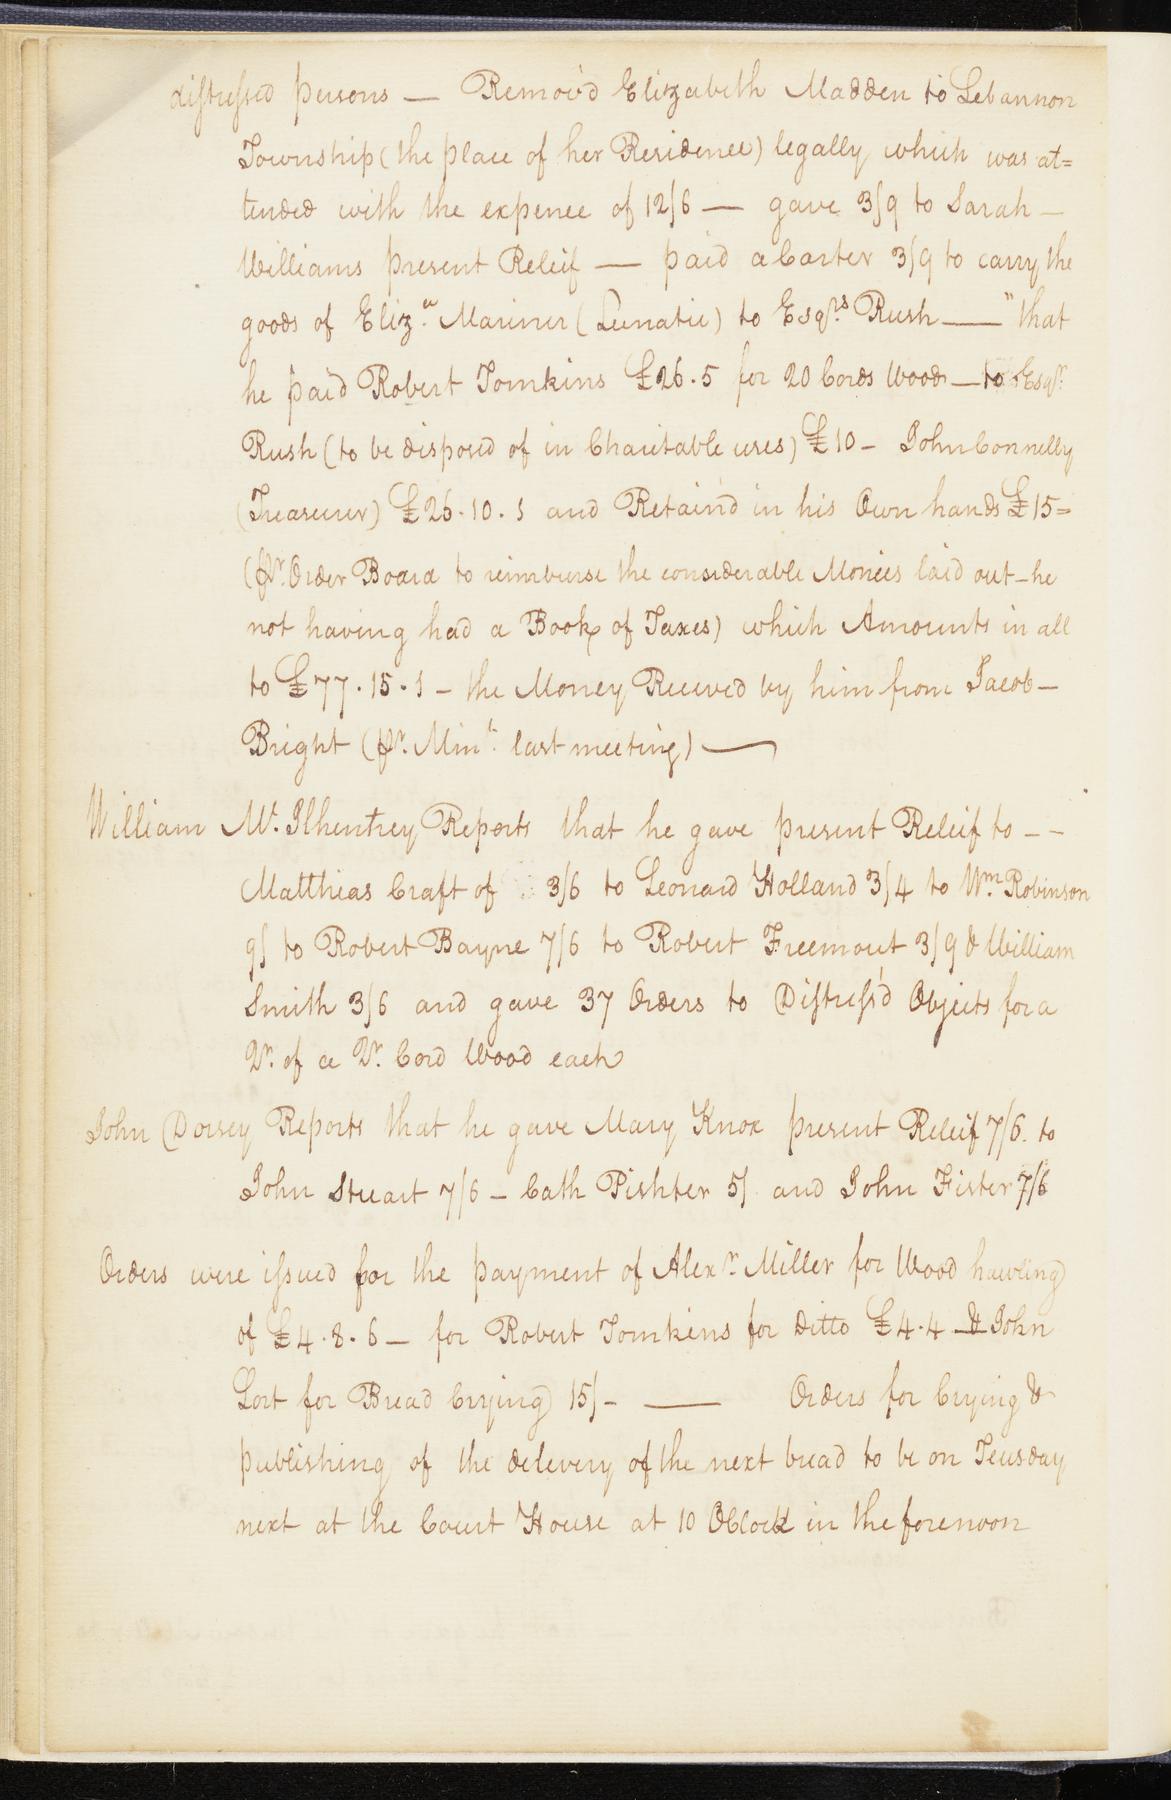 distressed persons — Remov'd Elizabeth Madden to Lebannon
Township (the place of her Residence) legally which was at=
tended with the expence of 12/6 — gave 3/9 to Sarah —
Williams present Releif — paid a Carter 3/9 to carry the
goods of Eliz.a Mariner (Lunatic) to Esqr.s Rush — "that
he paid Robert Tomkins £26.5 for 20 Cords Wood — to Esqr.
Rush (to be disposed of in Charitable uses) £10 – John Connelly
(Treasurer) £26.10.1 and Retain'd in his Own hands £15=
(Pr. Order Board to reimburse the considerable Monies laid out – he
not having had a Book of Taxes) which Amounts in all
to £77.15.1 – the Money Received by him from Jacob –
Bright (Pr. Mints. last meeting) —
William Mc. Ilhentrey Reports that he gave present Releif to – –
Matthias Craft of 3/6 to Leonard Holland 3/4 to Wm. Robinson
9/ to Robert Bayne 7/6 to Robert Freemout 3/9 & William
Smith 3/6 and gave 37 Orders to Distress'd Objects for a
Qr. of a Qr. Cord Wood each
John Dorsey Reports that he gave Mary Knox present Releif 7/6. to
John Stuart 7/6 – Cath Pishter 5/ and John Fister 7/6
Orders were issued for the payment of Alexr. Miller for Wood hawling
of £4.8.6 – for Robert Tomkins for Ditto £4.4 – & John
Lort for Bread Crying 15/ – — Orders for Crying &
publishing of the delevery of the next bread to be on Teusday
next at the Court House at 10 OClock in the forenoon